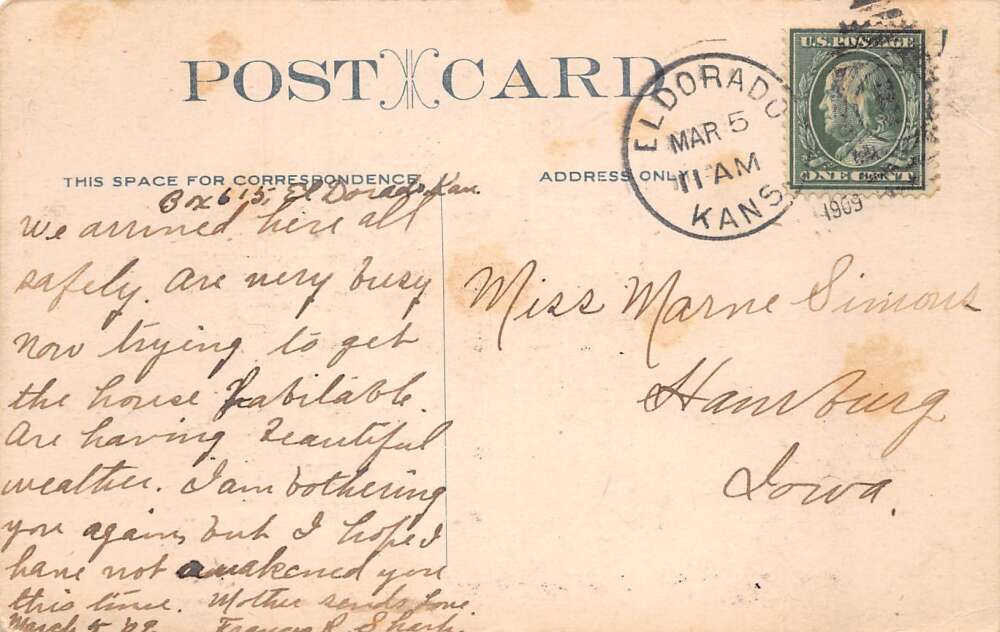 POST CARD
THIS SPACE FOR CORRESPONDENCE
ADDRESS ONLY
ELDORADO
MAR 5
11 AM
KANS
1909
U.S. POSTAGE
ONE CENT
Box 615, El Dorado, Kan
We arrived here all
safely. Are very busy
now trying to get
the house habitable.
Are having beautiful
weather. I am bothering
you again, but I hope I
have not awakened you
this time. Mother sends love.
March 5 '09. Frances R.
Miss Marne Simons
Hamburg
Iowa.